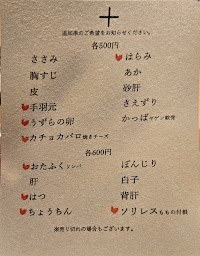 追加串のご希望をお知らせください。
各500円
ささみ
胸すじ
皮
手羽元
うずらの卵
カチョカバロ 焼きチーズ
はらみ
あか
砂肝
さえずり
かっぱ ヤゲン軟骨
各600円
おたふく リンパ
肝
はつ
ちょうちん
ぼんじり
白子
背肝
ソリレス ももの付根
売り切れの場合もございます。